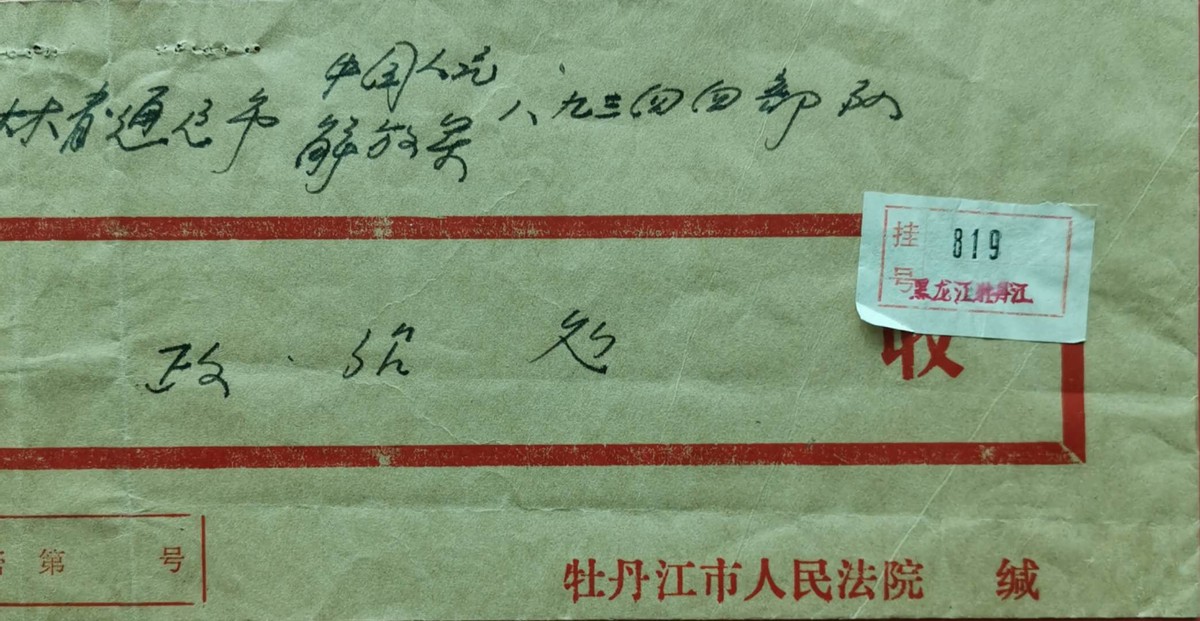 中国人民
林省通化市 解放军 八九三四四部队
挂号 819
黑龙江牡丹江
政治处 收
第 号
牡丹江市人民法院 缄